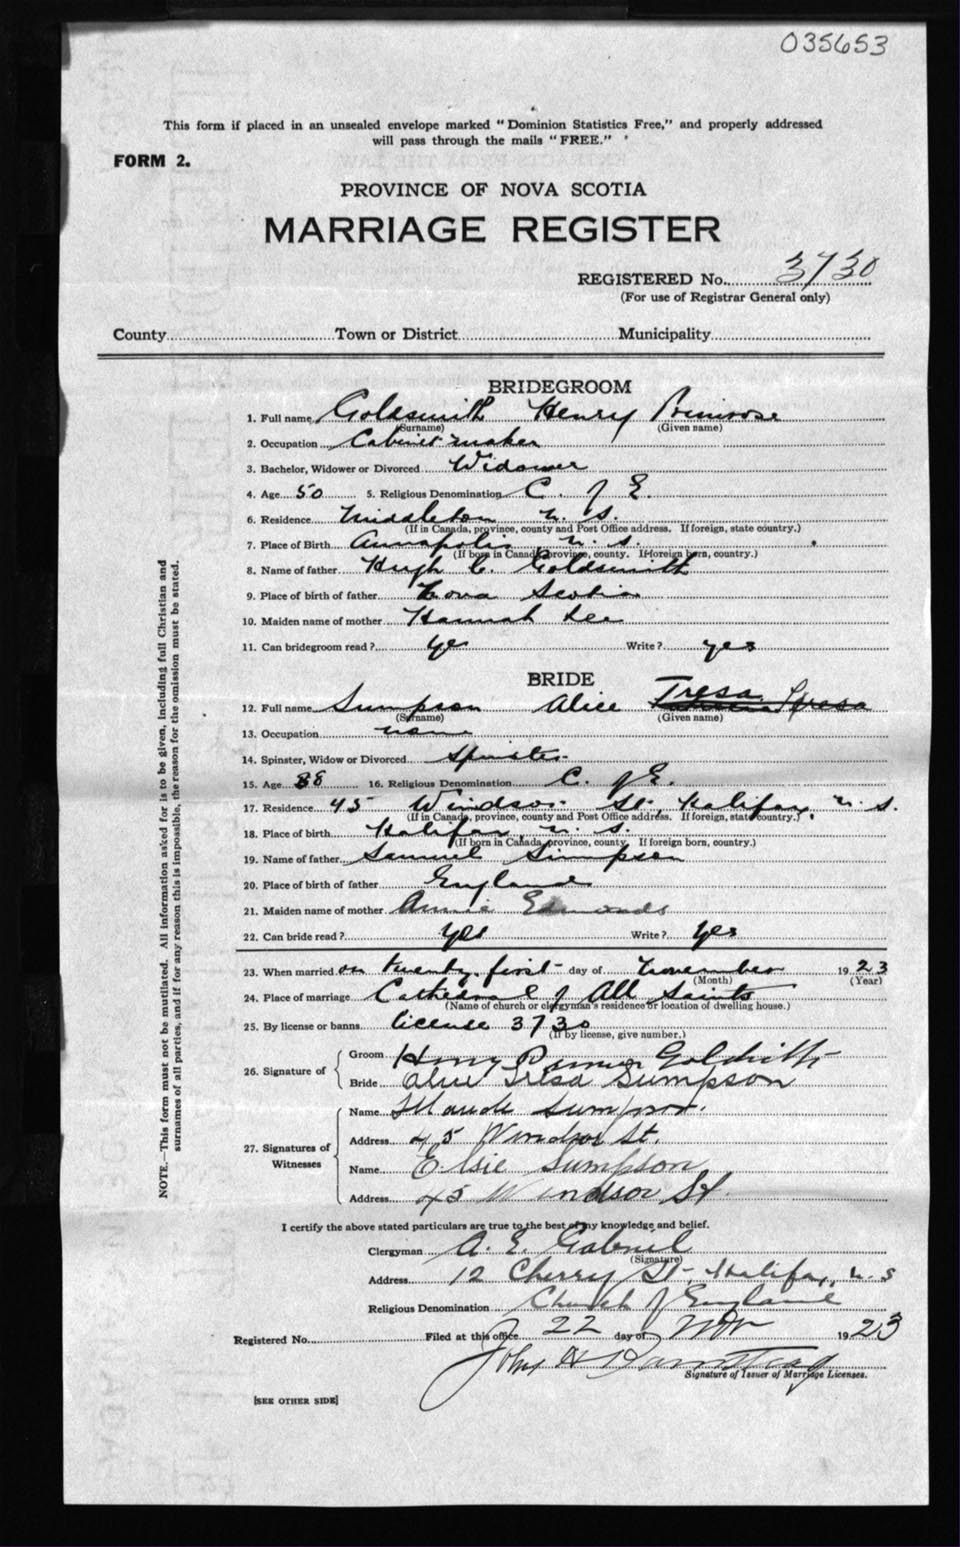 035653
This form if placed in an unsealed envelope marked "Dominion Statistics Free," and properly addressed
will pass through the mails "FREE."
FORM 2.
PROVINCE OF NOVA SCOTIA
MARRIAGE REGISTER
REGISTERED No. 3730
(For use of Registrar General only)
County Town or District Municipality
BRIDEGROOM
1. Full name Goldsmith Henry Primrose
(Surname) (Given name)
2. Occupation Cabinet maker
3. Bachelor, Widower or Divorced Widower
4. Age 50 5. Religious Denomination C. of E.
6. Residence Middleton N. S.
(If in Canada, province, county and Post Office address. If foreign, state country.)
7. Place of Birth Annapolis N. S.
(If born in Canada, province, county. If foreign born, country.)
8. Name of father Hugh C. Goldsmith
9. Place of birth of father Nova Scotia
10. Maiden name of mother Hannah Lee
11. Can bridegroom read? yes Write? yes
BRIDE
12. Full name Simpson Alice Tresa Tresa
(Surname) (Given name)
13. Occupation none
14. Spinster, Widow or Divorced Spinster
15. Age 38 16. Religious Denomination C. of E.
17. Residence 45 Windsor St. Halifax, N. S.
(If in Canada, province, county and Post Office address. If foreign, state country.)
18. Place of birth Halifax, N. S.
(If born in Canada, province, county. If foreign born, country.)
19. Name of father Samuel Simpson
20. Place of birth of father England
21. Maiden name of mother Annie Edmonds
22. Can bride read? yes Write? yes
23. When married on twenty first day of November 1923
(Month) (Year)
24. Place of marriage Cathedral of All Saints
(Name of church or clergyman's residence or location of dwelling house.)
25. By license or banns. license 3730
(If by license, give number.)
26. Signature of
Groom Henry Goldsmith
Bride Alice Tresa Simpson
27. Signatures of Witnesses
Name Maude Simpson.
Address 45 Windsor St.
Name Elsie Simpson
Address 45 Windsor St.
I certify the above stated particulars are true to the best of my knowledge and belief.
Clergyman A. E. Gabriel
(Signature)
Address 12 Cherry St., Halifax, N. S
Religious Denomination Church of England
Registered No. Filed at this office 22 day of Nov 1923
John H
Signature of Issuer of Marriage Licenses.
[SEE OTHER SIDE]
NOTE.—This form must not be mutilated. All information asked for is to be given, including full Christian and
surnames of all parties, and if for any reason this is impossible, the reason for the omission must be stated.